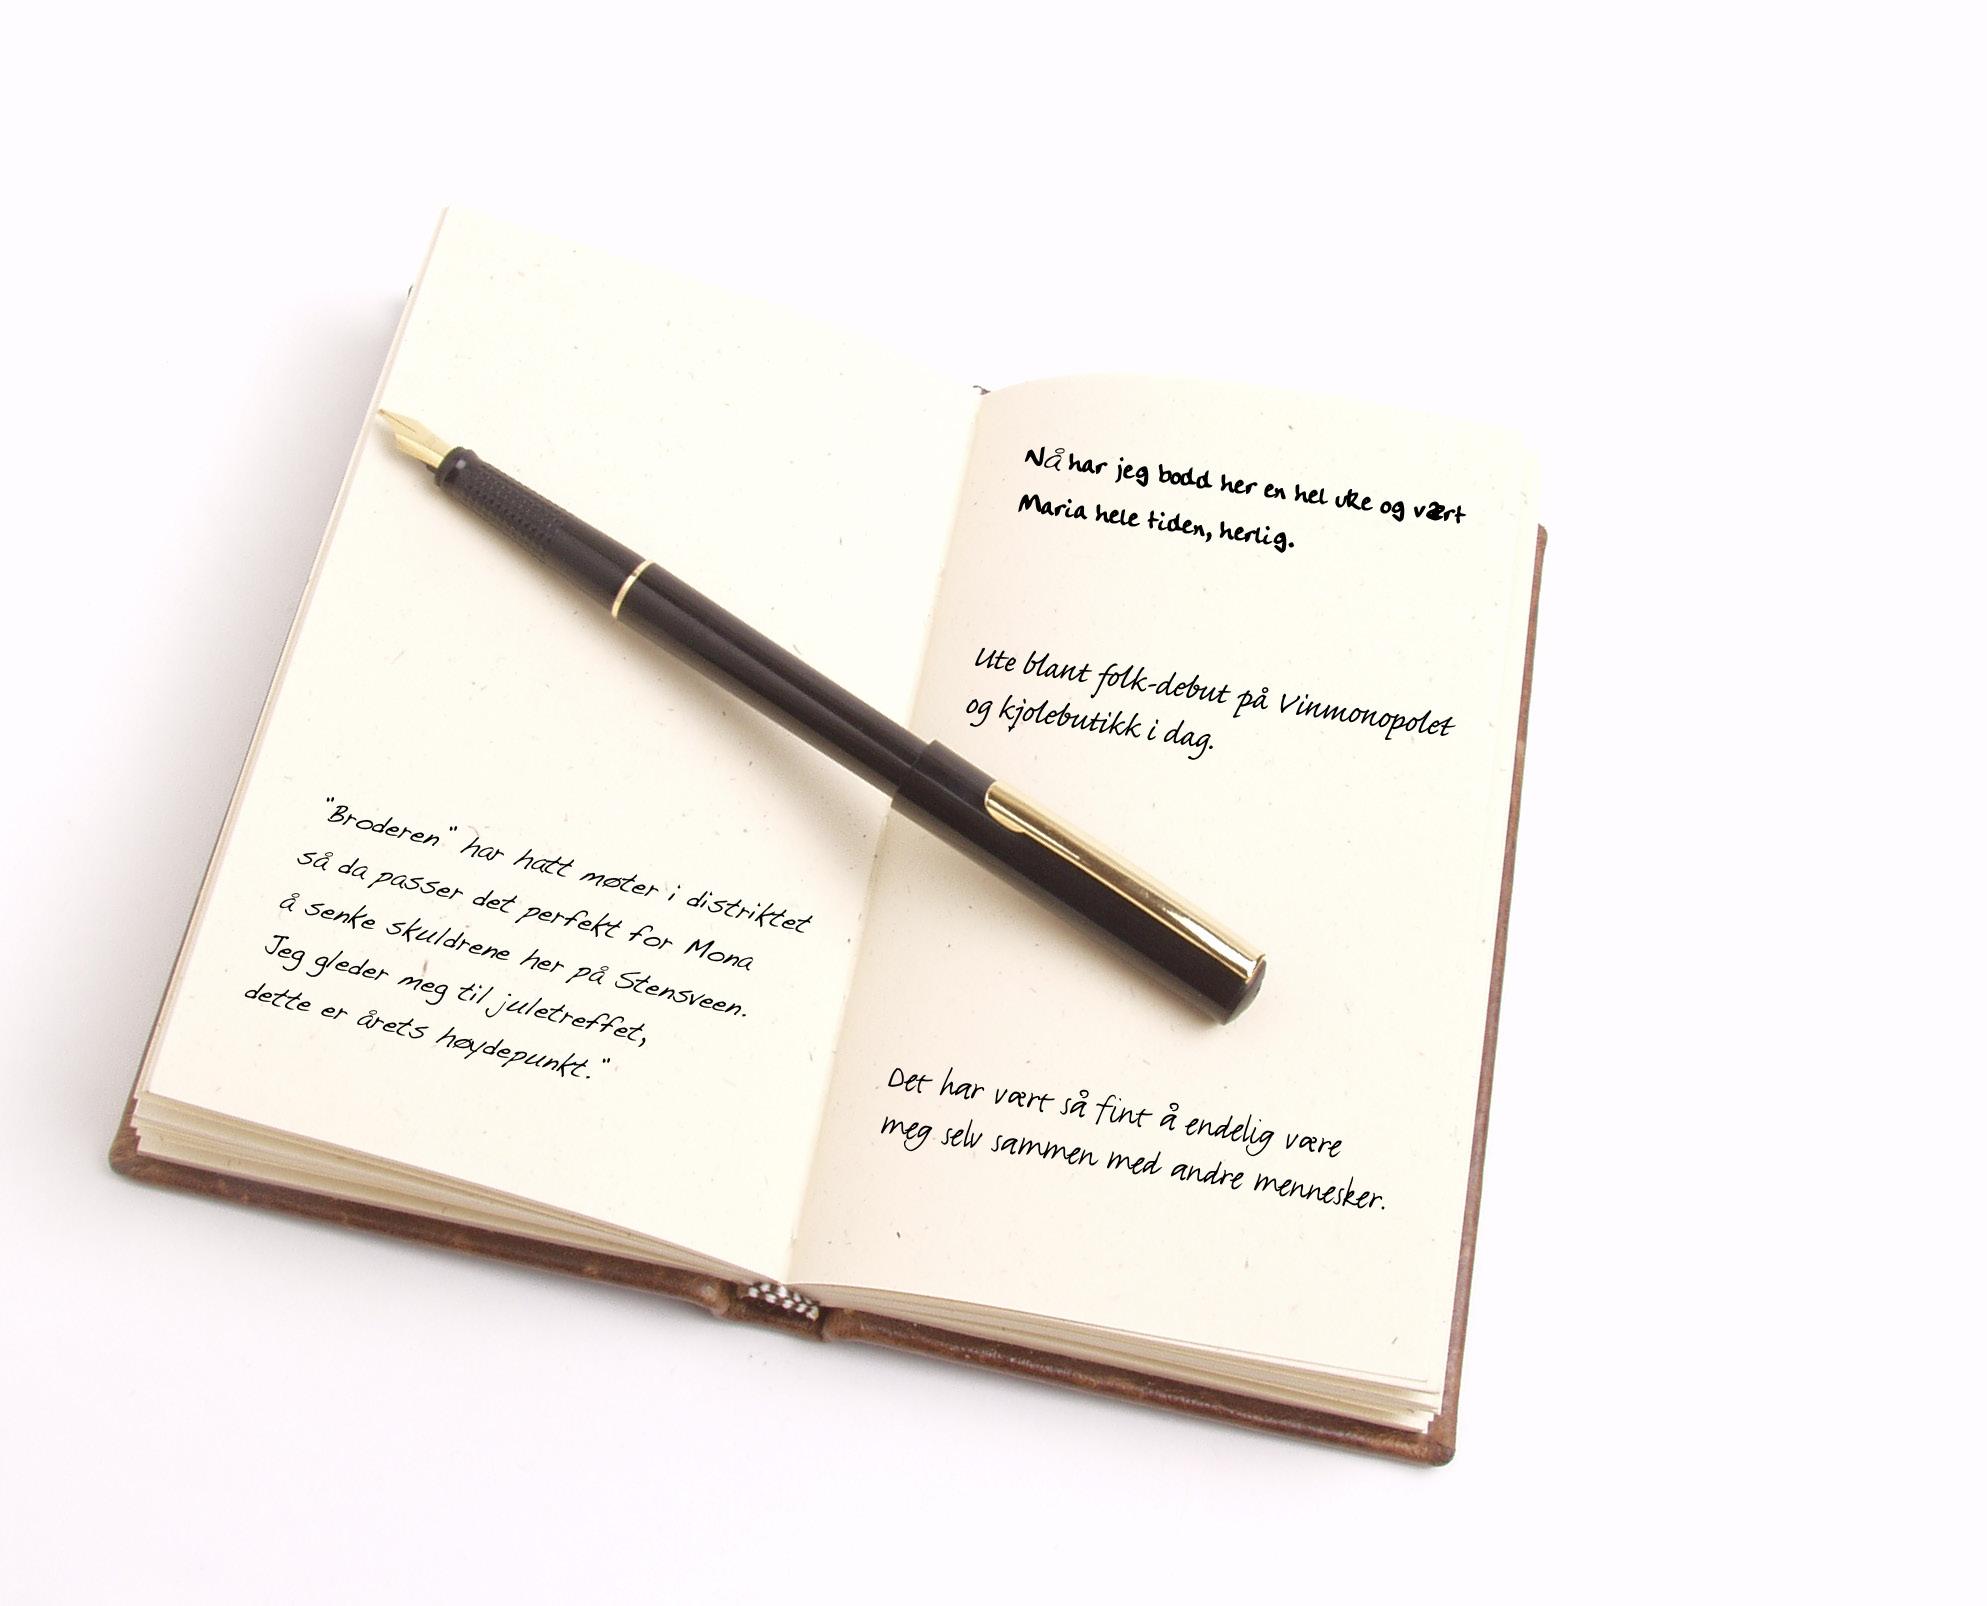 "Broderen" har hatt møter i distriktet
så da passer det perfekt for Mona
å senke skuldrene her på Stensveen.
Jeg gleder meg til juletreffet,
dette er årets høydepunkt."
Nå har jeg bodd her en hel uke og vært
Maria hele tiden, herlig.
Ute blant folk-debut på Vinmonopolet
og kjolebutikk i dag.
Det har vært så fint å endelig være
meg selv sammen med andre mennesker.